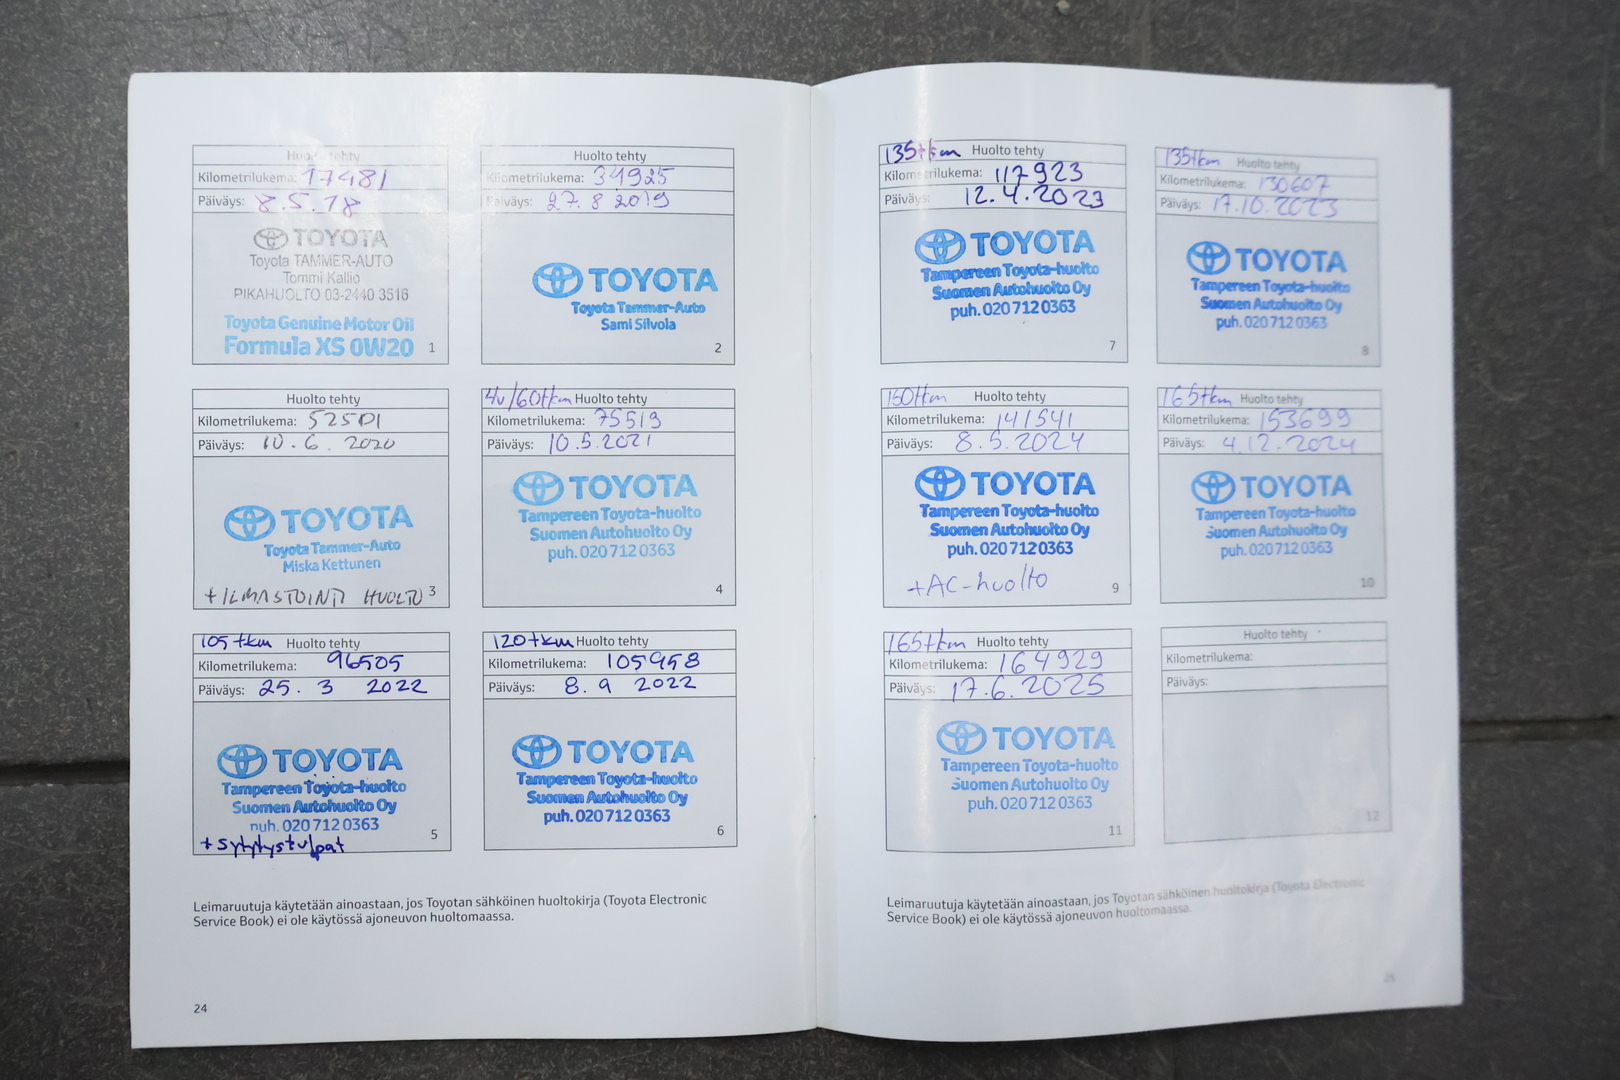 Huolto tehty
Kilometrilukema: 17481
Päiväys: 8.5.18
TOYOTA
Toyota TAMMER-AUTO
Tommi Kallio
PIKAHUOLTO 03-2440 3516
Toyota Genuine Motor Oil
Formula XS 0W20
1
Huolto tehty
Kilometrilukema: 34925
Päiväys: 27.8 2019
TOYOTA
Toyota Tammer-Auto
Sami Silvola
2
Huolto tehty
Kilometrilukema: 52501
Päiväys: 10.6. 2020
TOYOTA
Toyota Tammer-Auto
Miska Kettunen
+ILMASTOINTI HUOLTO 3
4v/60tkm Huolto tehty
Kilometrilukema: 75519
Päiväys: 10.5.2021
TOYOTA
Tampereen Toyota-huolto
Suomen Autohuolto Oy
puh. 020 712 0363
4
105 tkm Huolto tehty
Kilometrilukema: 96505
Päiväys: 25. 3 2022
TOYOTA
Tampereen Toyota-huolto
Suomen Autohuolto Oy
puh. 020 712 0363
+ sytytystulpat
5
120 tkm Huolto tehty
Kilometrilukema: 105958
Päiväys: 8.9 2022
TOYOTA
Tampereen Toyota-huolto
Suomen Autohuolto Oy
puh. 020 712 0363
6
Leimaruutuja käytetään ainoastaan, jos Toyotan sähköinen huoltokirja (Toyota Electronic
Service Book) ei ole käytössä ajoneuvon huoltomaassa.
24
135tkm Huolto tehty
Kilometrilukema: 117923
Päiväys: 12.4.2023
TOYOTA
Tampereen Toyota-huolto
Suomen Autohuolto Oy
puh. 020 712 0363
7
135tkm Huolto tehty
Kilometrilukema: 130607
Päiväys: 17.10.2023
TOYOTA
Tampereen Toyota-huolto
Suomen Autohuolto Oy
puh. 020 712 0363
8
150tkm Huolto tehty
Kilometrilukema: 141541
Päiväys: 8.5.2024
TOYOTA
Tampereen Toyota-huolto
Suomen Autohuolto Oy
puh. 020 712 0363
+AC-huolto
9
165tkm Huolto tehty
Kilometrilukema: 153699
Päiväys: 4.12.2024
TOYOTA
Tampereen Toyota-huolto
Suomen Autohuolto Oy
puh. 020 712 0363
10
165tkm Huolto tehty
Kilometrilukema: 164929
Päiväys: 17.6.2025
TOYOTA
Tampereen Toyota-huolto
Suomen Autohuolto Oy
puh. 020 712 0363
11
Huolto tehty
Kilometrilukema:
Päiväys:
12
Leimaruutuja käytetään ainoastaan, jos Toyotan sähköinen huoltokirja (Toyota Electronic
Service Book) ei ole käytössä ajoneuvon huoltomaassa.
25